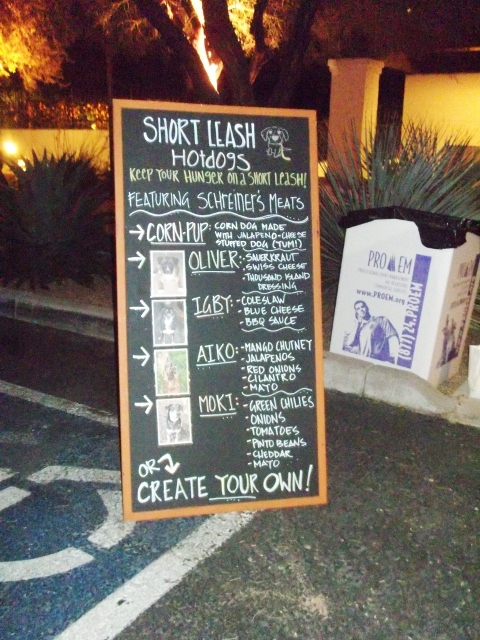 SHORT LEASH
HOtdOgS
KEEP YOUR HUNGER ON A SHORT LEASH!
FEATURING SCHREINER'S MEATS
→ CORN-PUP: CORN DOG MADE
WITH JALAPENO-CHEESE
STUFFED DOG (YUM!)
→ OLIVER: -SAUERKRAUT
-SWISS CHEESE
-THOUSAND ISLAND
DRESSING
→ IGBY: -COLESLAW
-BLUE CHEESE
-BBQ SAUCE
→ AIKO: -MANGO CHUTNEY
-JALAPENOS
-RED ONIONS
-CILANTRO
-MAYO
→ MOKI: -GREEN CHILIES
-ONIONS
-TOMATOES
-PINTO BEANS
-CHEDDAR
-MAYO
OR
CREATE YOUR OWN!
PRO EM
www.PROEM.org
(877) 24.PROEM